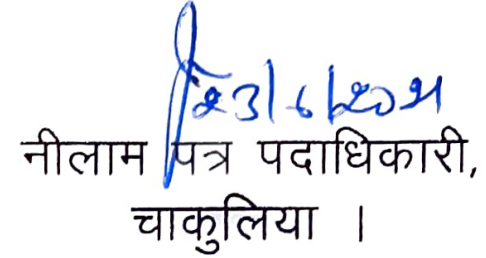 23/6/2021
नीलाम पत्र पदाधिकारी,
चाकुलिया ।